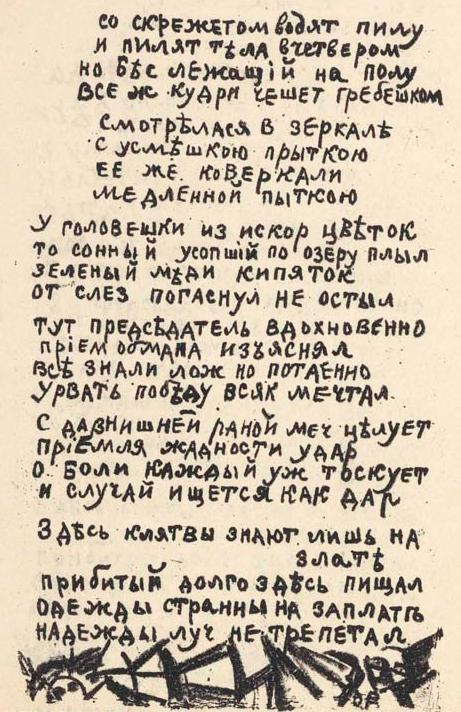 со скрежетом водят пилу
и пилят тѣла вчетвером
но бѣс лежащій на полу
все ж кудри чешет гребешком
смотрѣлася в зеркалѣ
с усмѣшкою прыткою
ее же коверкали
медленной пыткою
у головешки из искор цвѣток
то сонный усопшій по озеру плыл
зеленый мѣди кипяток
от слез погаснул не остыл
тут предсѣдатель вдохновенно
пріем обмана изъяснял
всѣ знали лож но потаенно
урвать побѣду всяк мечтал
с давнишней раной меч цѣлует
пріемля жадности удар
о боли каждый уж тоскует
и случай ищется как дар
здѣсь клятвы знают лишь на
златѣ
прибитый долго здѣсь пищал
одежды странны на заплатѣ
надежды луч не трепетал